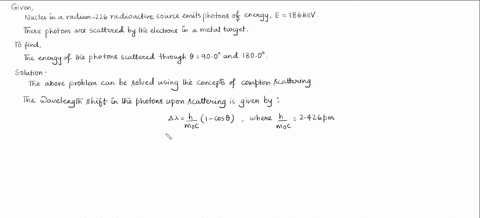 Given,
Nuclei in a radium-226 radioactive source emits photons of energy, E = 186 keV.
These photons are scattered by the electrons in a metal target.
To find,
The energy of the photons scattered through θ = 90.0° and 180.0°.
Solution:
The above problem can be solved using the concepts of compton scattering
The Wavelength shift in the photons upon scattering is given by:
Δλ = h/m₀c (1-cosθ), where h/m₀c = 2.426pm